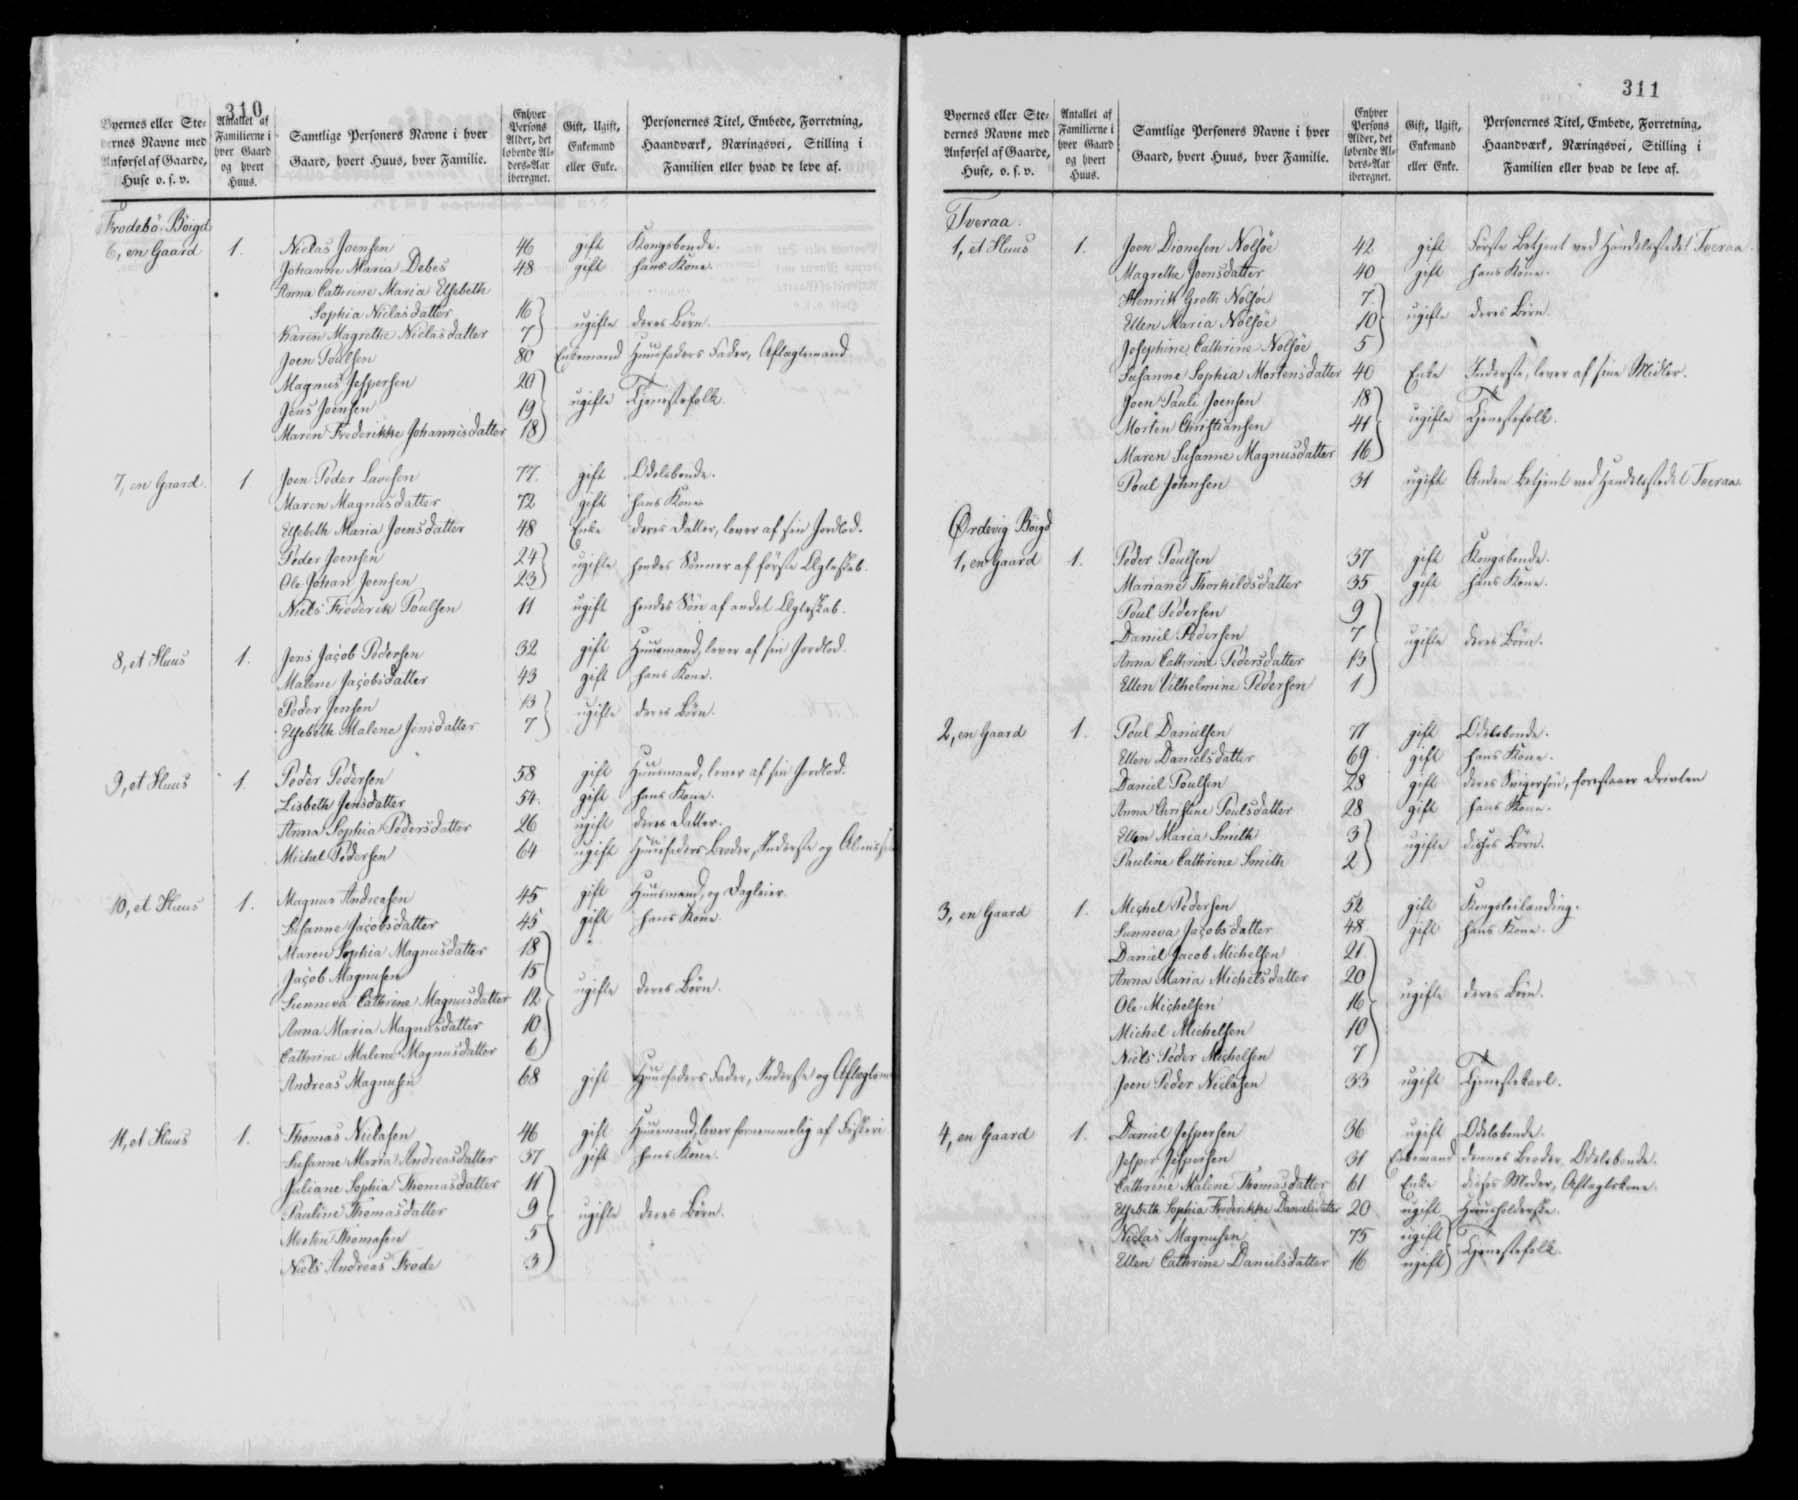 310
Byernes eller Ste-
dernes Navne med
Anførsel af Gaarde,
Huse o. s. v.
Antallet af
Familierne i
hver Gaard
og hvert
Huus.
Samtlige Personers Navne i hver
Gaard, hvert Huus, hver Familie.
Enhver
Persons
Alder, det
løbende Al-
ders-Aar
iberegnet.
Gift, Ugift,
Enkemand
eller Enke.
Personernes Titel, Embede, Forretning,
Haandværk, Næringsvei, Stilling i
Familien eller hvad de leve af.
Frodebö Böigd
6, en Gaard 1. Niclas Joensen 46 gift Kongsbonde.
Johanne Maria Debes 48 gift hans Kone.
Anna Cathrine Maria Elsebeth
Sophia Niclasdatter 16 ugifte deres Börn.
Karen Magrethe Niclasdatter 7
Joen Poulsen 80 Enkemand Huusfaders Fader, Aftagtsmand
Magnus Jespersen 20 ugifte Tjenestefolk.
Jens Joensen 19
Maren Frederikke Johannisdatter 18
7, en Gaard. 1 Joen Peder Lavesen 77. gift Odelsbonde.
Maren Magnusdatter 72 gift hans Kone
Elsebeth Maria Joensdatter 48 Enke deres Datter, lever af sin Jordlod.
Peder Joensen 24 ugifte hendes Sönner af förste Ægteskab.
Ole Johan Joensen 23
Niels Frederik Poulsen 11 ugift hendes Sön af andet Ægteskab.
8, et Huus 1. Jens Jacob Pedersen 32 gift Huusmand, lever af sin Jordlod.
Malene Jacobsdatter 43 gift hans Kone.
Peder Jensen 13 ugifte deres Börn.
Elsebeth Malene Jensdatter 7
9, et Huus 1. Peder Pedersen 58 gift Huusmand, lever af sin Jordlod.
Lisbeth Jensdatter 54. gift hans Kone.
Anna Sophia Pedersdatter 26 ugift deres Datter.
Michel Pedersen 64 ugift Huusfaders Broder, Inderste og
10, et Huus 1. Magnus Andreasen 45 gift Huusmand, og Dagleier.
Susanne Jacobsdatter 45 gift hans Kone
Maren Sophia Magnusdatter 18
Jacob Magnusen 15
Sunneva Cathrine Magnusdatter 12 ugifte deres Börn.
Anna Maria Magnusdatter 10
Cathrine Malene Magnusdatter 6
Andreas Magnusen 68 gift Huusfaders Fader, Inderste og
11, et Huus 1. Thomas Niclasen 46 gift Huusmand, lever fornemmelig af Fiskeri
Susanne Maria Andreasdatter 37 gift hans Kone.
Juliane Sophia Thomasdatter 11
Pauline Thomasdatter 9 ugifte deres Börn.
Morten Thomasen 5
Niels Andreas Frode 3
311
Byernes eller Ste-
dernes Navne med
Anførsel af Gaarde,
Huse, o. s. v.
Antallet af
Familierne i
hver Gaard
og hvert
Huus.
Samtlige Personers Navne i hver
Gaard, hvert Huus, hver Familie.
Enhver
Persons
Alder, det
løbende Al-
ders-Aar
iberegnet.
Gift, Ugift,
Enkemand
eller Enke.
Personernes Titel, Embede, Forretning,
Haandværk, Næringsvei, Stilling i
Familien eller hvad de leve af.
Tveraa.
1, et Huus 1. Joen Dionesen Nolsöe 42 gift Förste Betjent ved Handelsstedet Tveraa.
Magrethe Joensdatter 40 gift hans Kone.
Henrik Groth Nolsöe 7
Ellen Maria Nolsöe 10 ugifte deres Börn.
Josephine Cathrine Nolsöe 5
Susanne Sophia Mortensdatter 40 Enke Inderste, lever af sine Midler.
Joen Pauli Joensen 18
Morten Christiansen 41 ugifte Tjenestefolk.
Maren Susanne Magnusdatter 16
Poul Johnsen 31 ugift Anden Betjent ved Handelsstedet Tveraa.
Ørdevig Böigd
1, en Gaard 1. Peder Poulsen 37 gift Kongsbonde.
Mariane Thorkildsdatter 35 gift hans Kone.
Poul Pedersen 9
Daniel Pedersen 7 ugifte deres Börn.
Anna Cathrine Pedersdatter 13
Ellen Vilhelmine Pedersen 1
2, en Gaard 1. Poul Danielsen 71 gift Odelsbonde.
Ellen Danielsdatter 69 gift hans Kone.
Daniel Poulsen 28 gift deres Svigersön, forestaaer Driften
Anna Christine Poulsdatter 28 gift hans Kone.
Ellen Maria Smith 3 ugifte disses Börn.
Pauline Cathrine Smith 2
3, en Gaard 1. Michel Pedersen 52 gift Kongsleilænding.
Sunneva Jacobsdatter 48 gift hans Kone.
Daniel Jacob Michelsen 21
Anna Maria Michelsdatter 20
Ole Michelsen 16 ugifte deres Börn.
Michel Michelsen 10
Niels Peder Michelsen 7
Joen Peder Niclasen 33 ugift Tjenestekarl.
4, en Gaard 1. Daniel Jespersen 36 ugift Odelsbonde.
Jesper Jespersen 31 Enkemand dennes Broder, Odelsbonde.
Cathrine Malene Thomasdatter 61 Enke disses Moder, Aftagtskone.
Elsebeth Sophia Frederikke Danielsdatter 20 ugift Huusholderske.
Niclas Magnusen 75 ugift Tjenestefolk.
Ellen Cathrine Danielsdatter 16 ugift